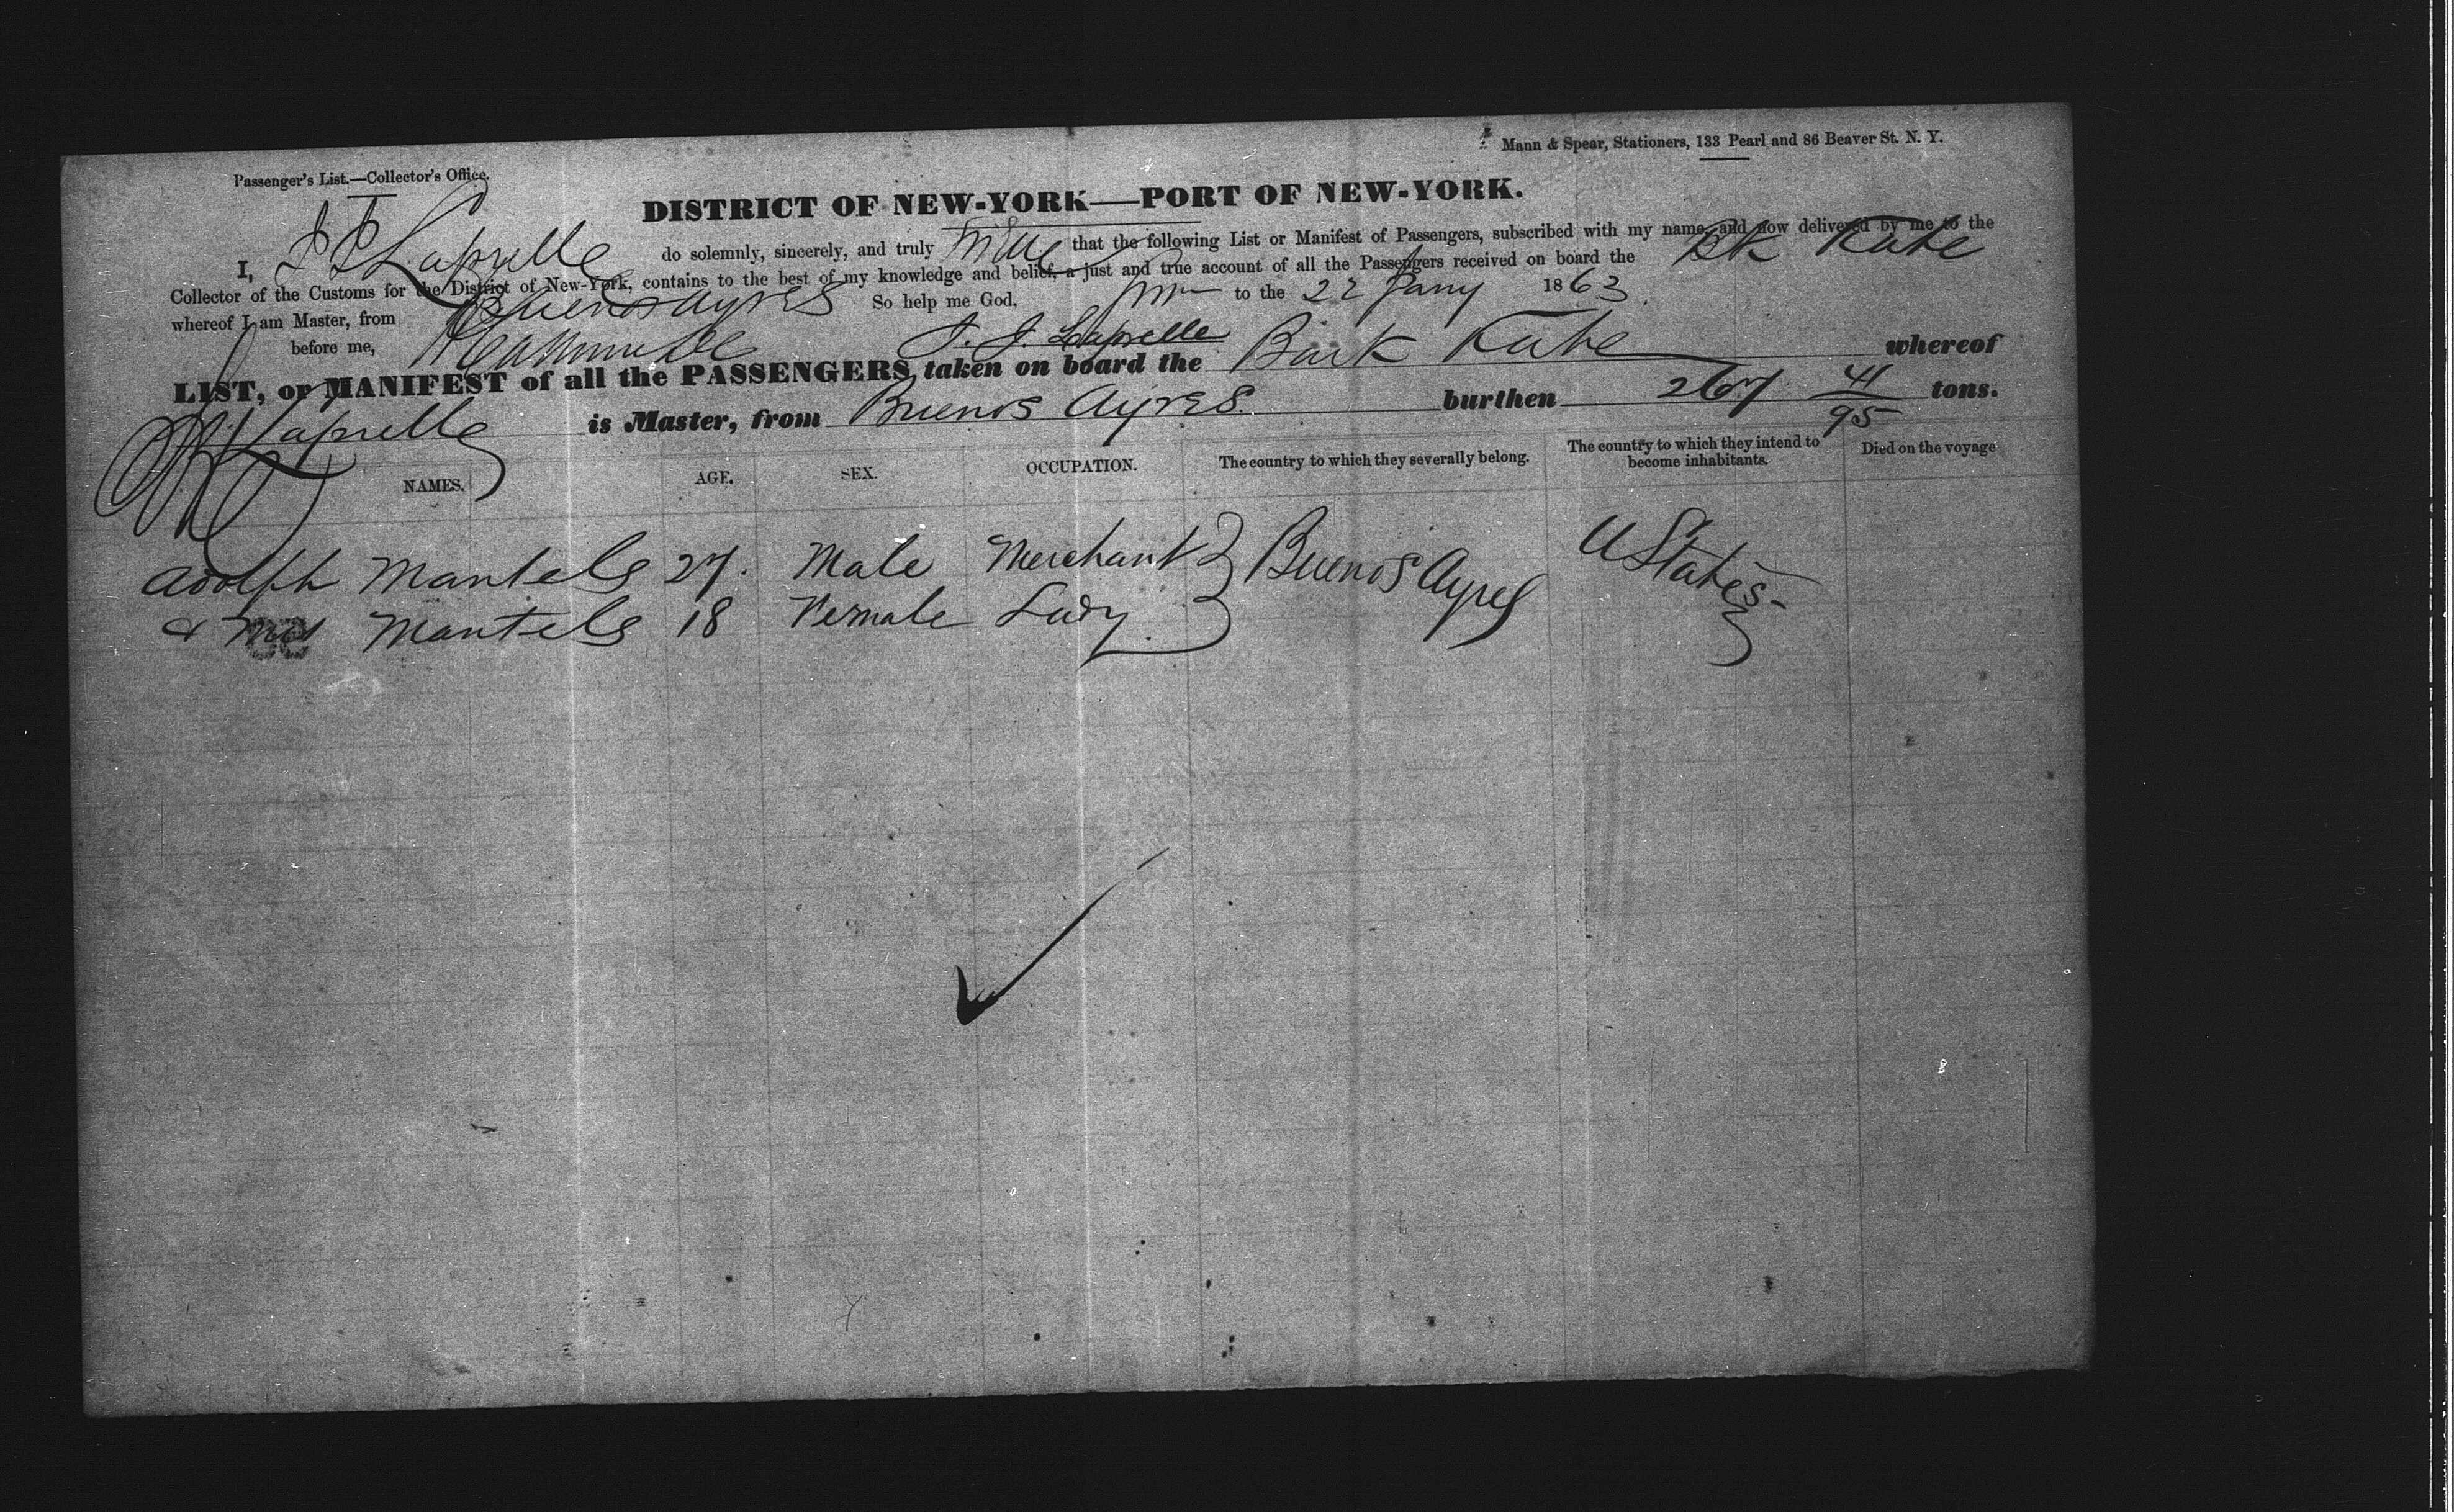 Mann & Spear, Stationers, 133 Pearl and 86 Beaver St. N. Y.
Passenger's List.—Collector's Office.
DISTRICT OF NEW-YORK—PORT OF NEW-YORK.
I, J J Laprelle do solemnly, sincerely, and truly that the following List or Manifest of Passengers, subscribed with my name, and now delivered by me to the
Collector of the Customs for the District of New-York, contains to the best of my knowledge and belief, a just and true account of all the Passengers received on board the Bk Kate
whereof I am Master, from Buenos Ayres So help me God. to the 22 Jany 1863.
before me, J. J. Laprelle
LIST, or MANIFEST of all the PASSENGERS taken on board the Bark Kate whereof
J J Laprelle is Master, from Buenos Ayres burthen 267 41/95 tons.
NAMES. AGE. SEX. OCCUPATION. The country to which they severally belong. The country to which they intend to become inhabitants. Died on the voyage
Adolph Mantels 27. Male Merchant Buenos Ayres U States-
& Mrs Mantels 18 Female Lady